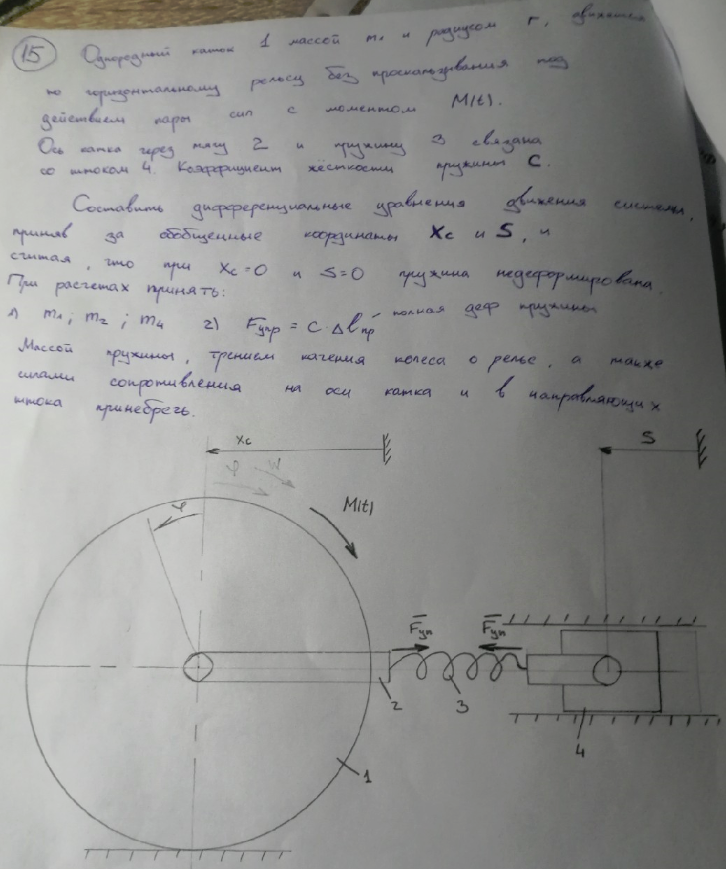 15 Однородный каток 1 массой m₁ и радиусом r, движется
по горизонтальному рельсу без проскальзывания под
действием пары сил с моментом M(t).
Ось катка через тягу 2 и пружину 3 связана
со штоком 4. Коэффициент жёсткости пружины C.
Составить дифференциальные уравнения движения системы,
приняв за обобщенные координаты Xc и S, и
считая, что при Xc=0 и S=0 пружина недеформирована.
При расчетах принять:
1) m₁; m₂; m₄ 2) Fупр = C·Δlпр - полная деф пружины
Массой пружины, трением качения колеса о рельс, а также
силами сопротивления на оси катка и в направляющих
штока принебречь.
Xc
S
φ
M(t)
φ
Fуп
Fуп
2
3
4
1